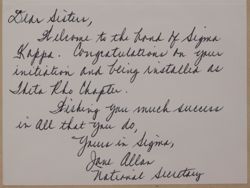 Dear Sisters,
Welcome to the bond of Sigma
Kappa. Congratulations on your
initiation and being installed as
Theta Rho Chapter.
Wishing you much success
in all that you do,
Yours in Sigma,
Jane Allan
National Secretary